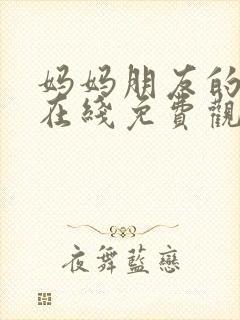 妈妈朋友的
在綫免費觀
夜舞藍戀